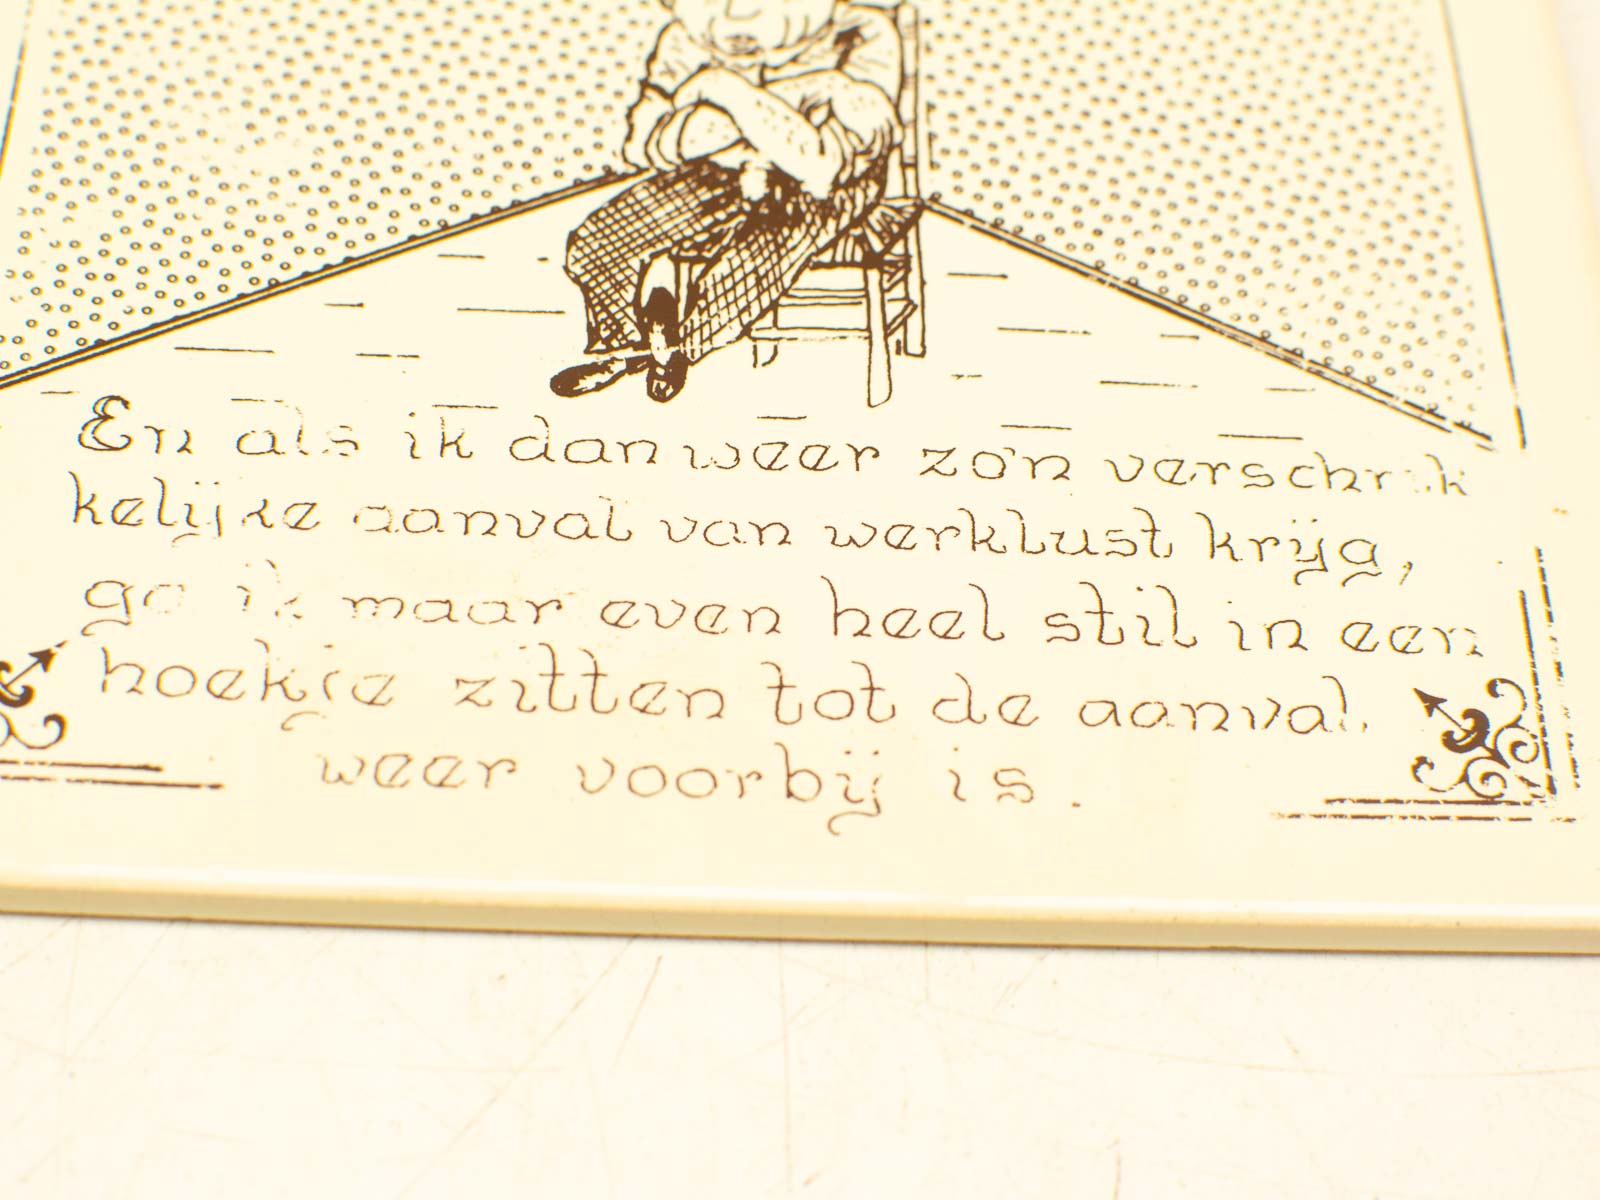 En als ik dan weer zo'n verschrik
kelijke aanval van werklust krijg,
ga ik maar even heel stil in een
hoekje zitten tot de aanval
weer voorbij is.